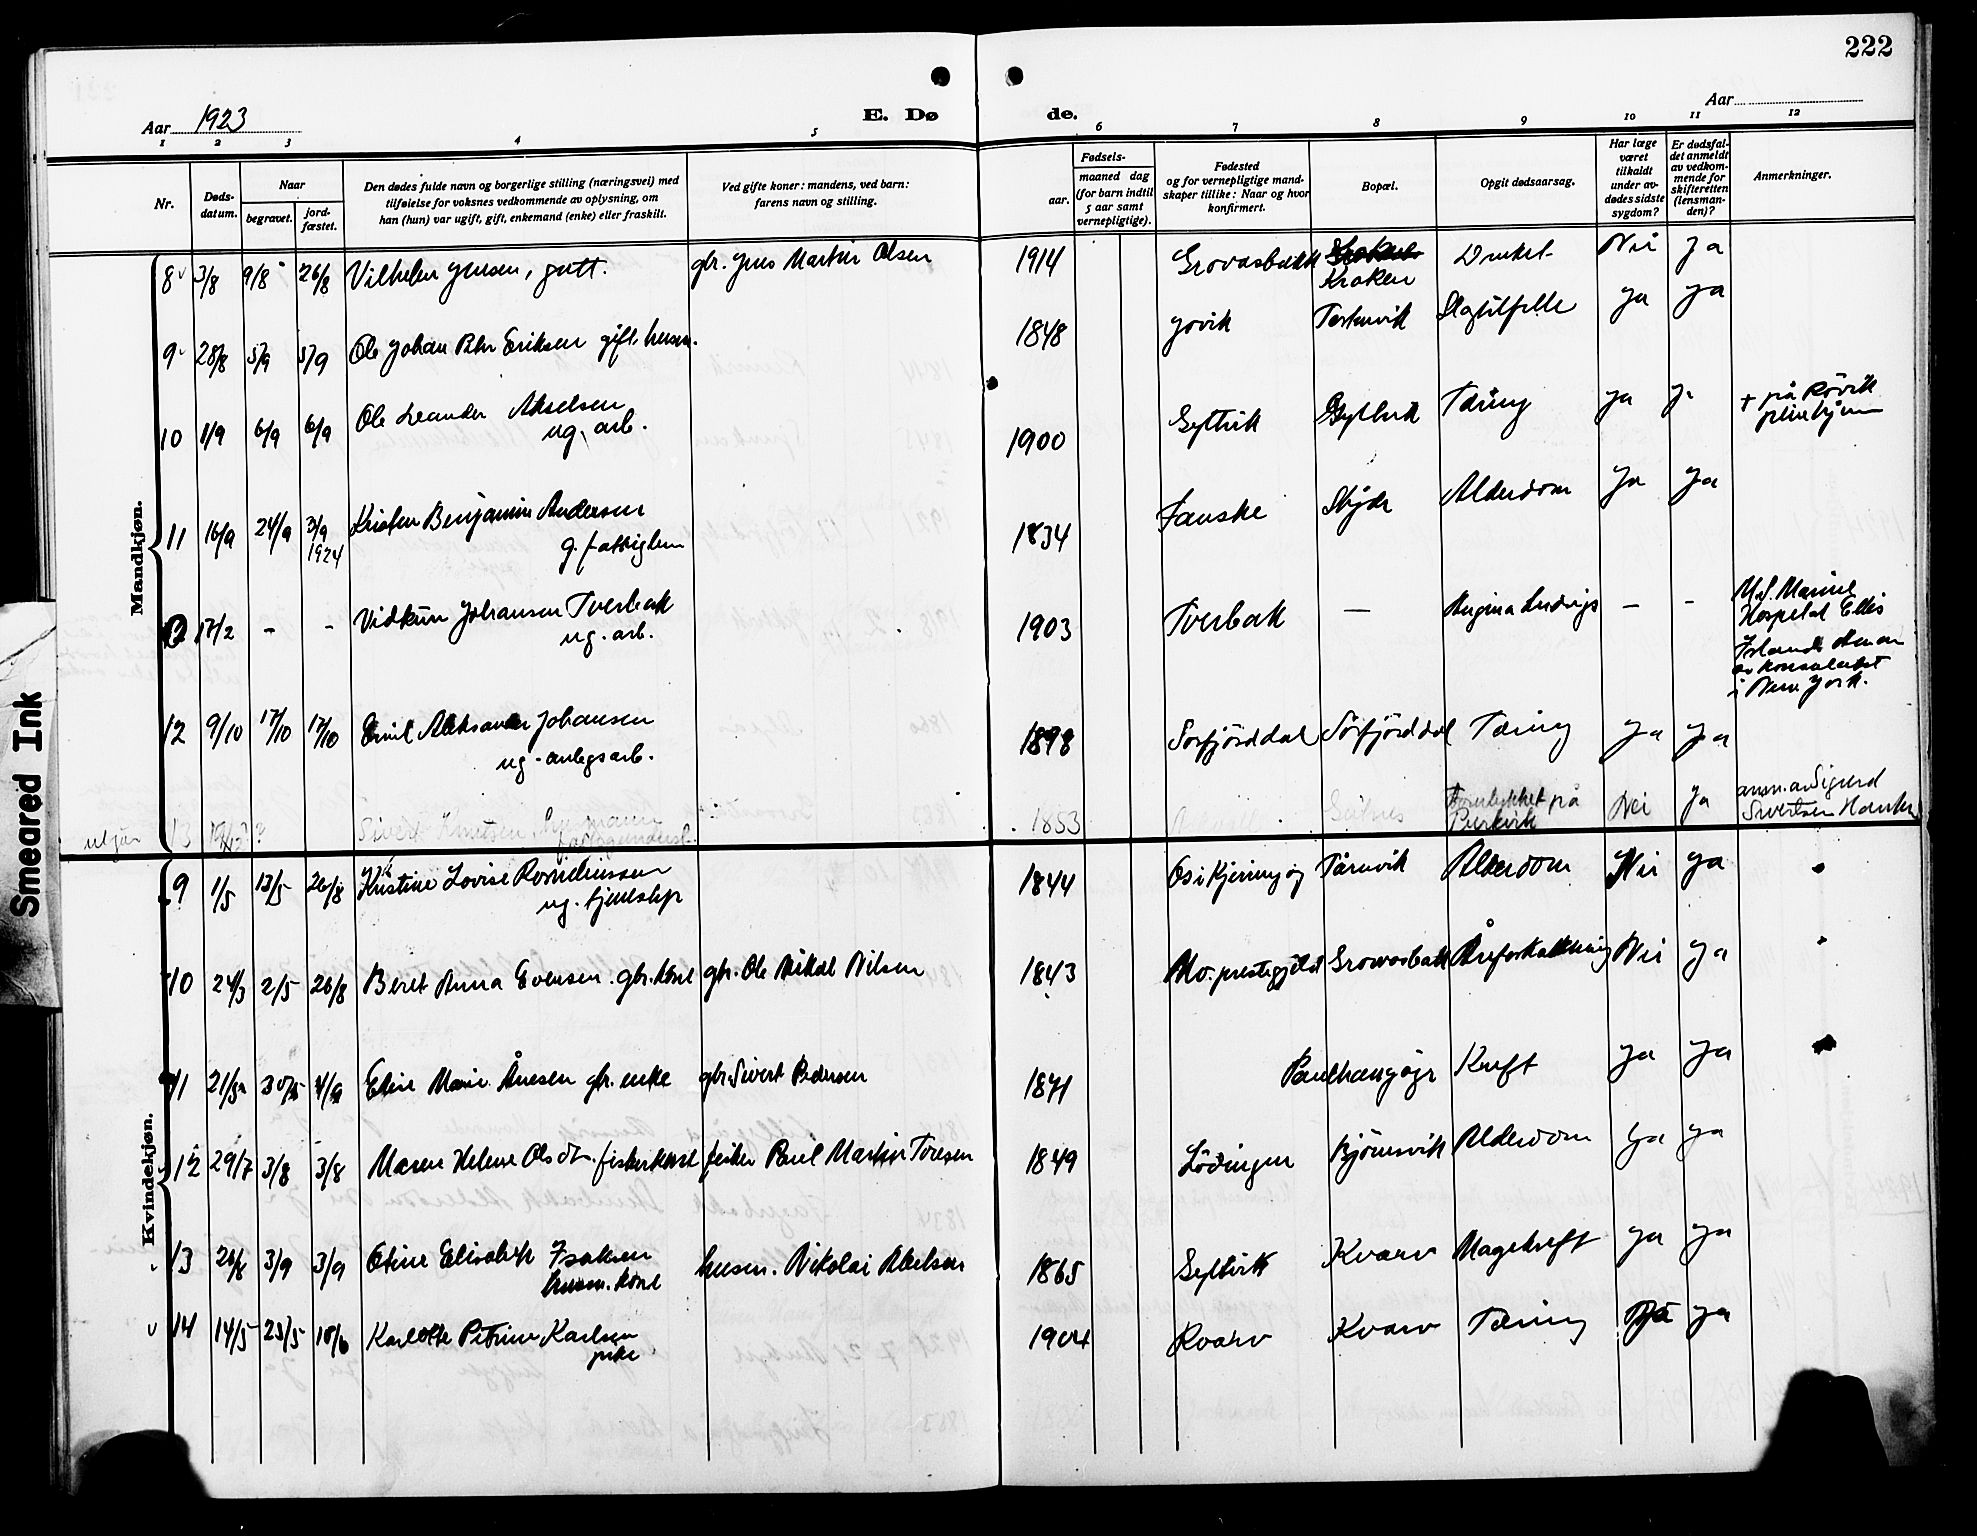 222
Aar 1923
E. Dø
de.
Aar
1 2 3 4 5 6 7 8 9 10 11 12
Nr.
Døds-
datum.
Naar
begravet.
jord-
fæstet.
Den dødes fulde navn og borgerlige stilling (næringsvei) med
tilføielse for voksnes vedkommende av oplysning, om
han (hun) var ugift, gift, enkemand (enke) eller fraskilt.
Ved gifte koner: mandens, ved barn:
farens navn og stilling.
Fødsels-
aar.
maaned dag
(for barn indtil
5 aar samt
vernepligtige).
Fødested
og for vernepligtige mand-
skaper tillike: Naar og hvor
konfirmert.
Bopæl.
Opgit dødsaarsag.
Har læge
været
tilkaldt
under av-
dødes sidste
sygdom?
Er dødsfal-
det anmeldt
av vedkom-
mende for
skifteretten
(lensman-
den)?
Anmerkninger.
Mandkjøn.
8 3/8 9/8 26/8 Vilhelm Jensen, gutt. gbr. Jens Martin Olsen 1914 Grovasbakk Kraken Druknet Nei ja
9 28/8 5/9 5/9 Ole Johan Peter Eriksen gift. husm. 1848 Jovik Torkevik Slagtilfelle ja ja
10 1/9 6/9 6/9 Ole Leander Akselsen
ug. arb. 1900 Gyltvik Gyltvik Tæring ja ja + på Røvik
pleiehjem
11 16/9 24/9 3/9
1924 Kristen Benjamin Andersen
g. fattiglem 1834 Fauske Alderdom ja ja
17/2 - - Vidkun Johansen Tverbak
ug. arb. 1903 Tverbak — Angina Ludvigs - - U.S. Marine
Hospital Ellis
Island
av konsulatet
i New York.
12 9/10 17/10 17/10 Emil Aleksander Johansen
ug. anlegsarb. 1898 Sørfjorddal Sørfjorddal Tæring ja ja
utgår 13 ? Sivert Knutsen 1853 Forulykket på
Nei ja anm. av Sigurd
Sivertsen
Kvindekjøn.
9 1/5 13/5 26/8 Kristine Lovise Korneliussen
ug. 1844 Os i Kjerringøy Tårnvik Alderdom Nei ja
10 24/3 2/5 26/8 Beret Anna Evensen. gbr. kone gbr. Ole Nikol Nilsen 1843 Mo. prestegjeld Grovasbakk Åreforkalkning Nei ja
11 Eline Marie Ånesen gbr. enke gbr. Sivert Pedersen 1871 Kreft ja ja
12 29/7 3/8 3/8 Maren Helene Olsdtr. fiskerkone fisker Paul Martin Toresen 1849 Lödingen Björnsvik Alderdom ja ja
13 26/8 3/9 3/9 Otine Elisabeth Isaksen
husm. kone husm. Nikolai Abelson 1865 Gyltvik Kvarv Magekreft ja ja
14 14/5 23/5 10/6 Karlotte Petrine Karlsen
pike 1904 Kvarv Kvarv Tæring Ja ja
Smeared Ink